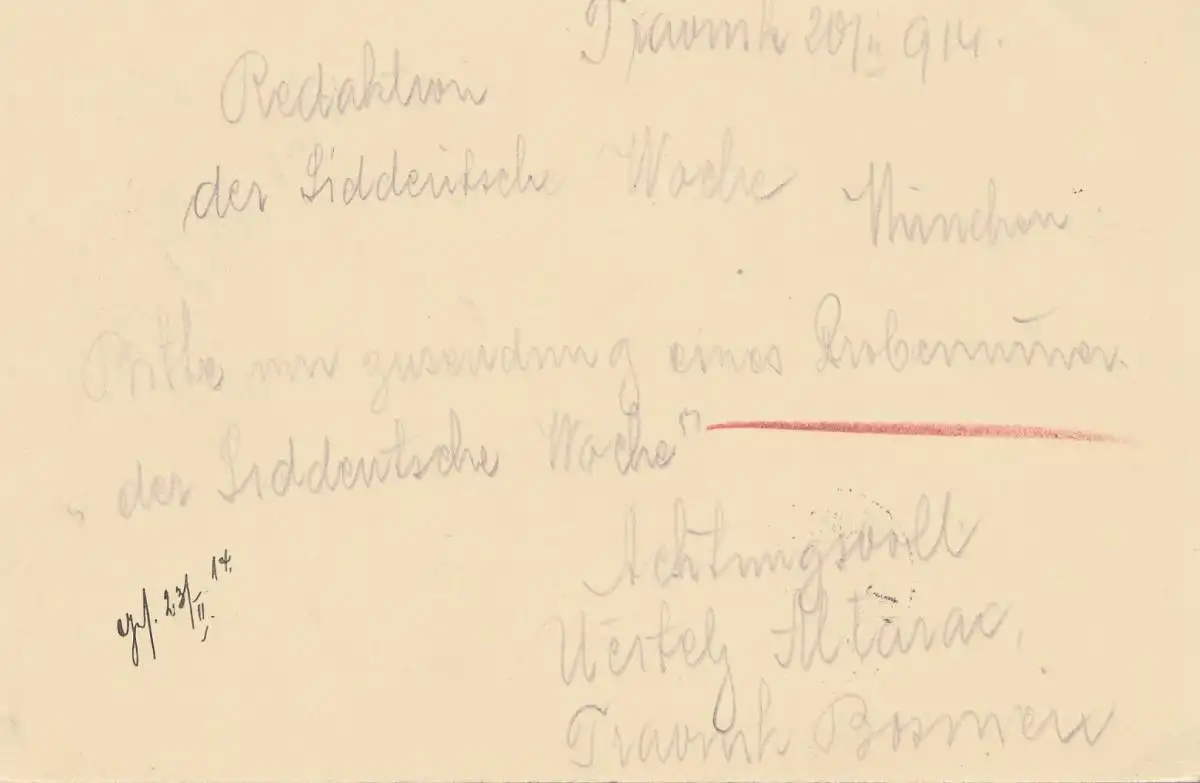 Travnik 20/II 914.
Redaktion
der Siddeutsche Woche München
Bitte um zusendung eines Probenum̅er.
„der Siddeutsche Woche"
Achtungsvoll
Učitelj Altarac,
Travnik Bosnien
23/II. 14.